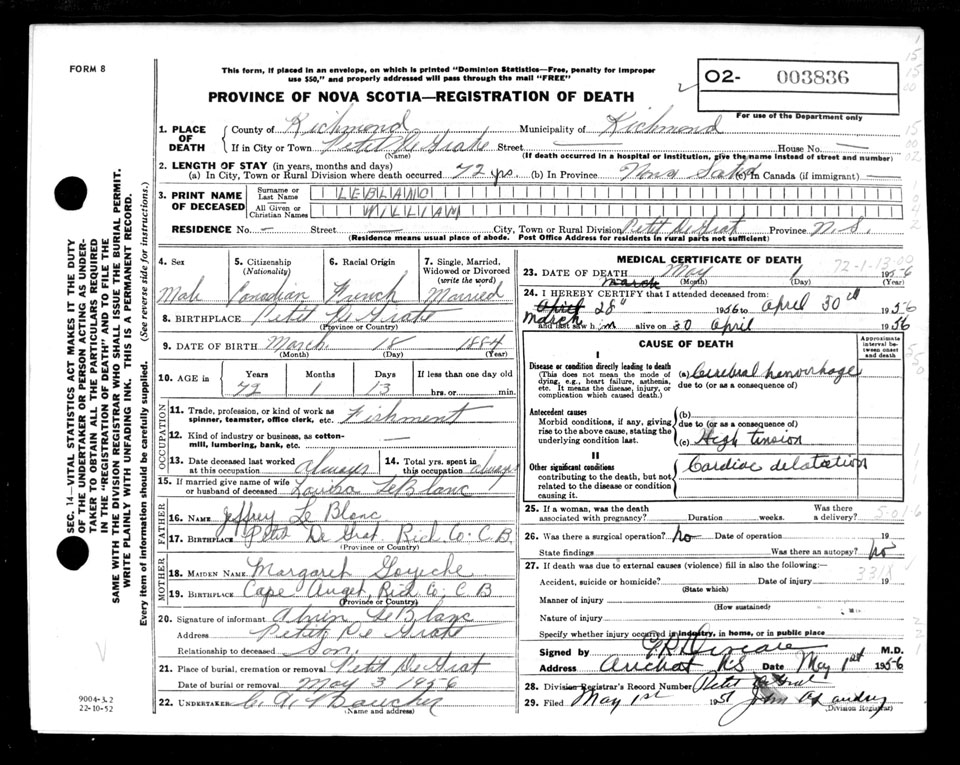 FORM 8
This form, if placed in an envelope, on which is printed "Dominion Statistics—Free, penalty for improper
use $50," and properly addressed will pass through the mail "FREE"
O2- 003836
For use of the Department only
PROVINCE OF NOVA SCOTIA—REGISTRATION OF DEATH
1. PLACE OF DEATH
County of Richmond Municipality of Richmond
If in City or Town Petit De Grate Street — House No. —
(Name) (If death occurred in a hospital or institution, give the name instead of street and number)
2. LENGTH OF STAY (in years, months and days)
(a) In City, Town or Rural Division where death occurred 72 yrs. (b) In Province Nova Scotia (c) In Canada (if immigrant) —
3. PRINT NAME OF DECEASED
Surname or Last Name LEBLANC
All Given or Christian Names WILLIAM
RESIDENCE No. — Street — City, Town or Rural Division Petit De Grat Province N.S.
(Residence means usual place of abode. Post Office Address for residents in rural parts not sufficient)
4. Sex
Male
5. Citizenship
(Nationality)
Canadian
6. Racial Origin
French
7. Single, Married, Widowed or Divorced
(write the word)
Married
8. BIRTHPLACE Petit De Grate
(Province or Country)
9. DATE OF BIRTH March 18 1884
(Month) (Day) (Year)
10. AGE in Years Months Days If less than one day old
72 1 13 hrs. or min.
OCCUPATION
11. Trade, profession, or kind of work as
spinner, teamster, office clerk, etc. Fishment
12. Kind of industry or business, as cotton-
mill, lumbering, bank, etc. —
13. Date deceased last worked
at this occupation always
14. Total yrs. spent in
this occupation always
15. If married give name of wife
or husband of deceased Louisa LeBlanc
FATHER
16. NAME Jeffrey Le Blanc
17. BIRTHPLACE Petit De Grat Rich Co. C.B.
(Province or Country)
MOTHER
18. MAIDEN NAME Margaret
19. BIRTHPLACE Cape Auget, Rich Co. C B
(Province or Country)
20. Signature of informant Alvin LeBlanc
Address Petit De Grate
Relationship to deceased Son
21. Place of burial, cremation or removal Petit De Grat
Date of burial or removal May 3 1956
22. UNDERTAKER C. A. Boucher
(Name and address)
MEDICAL CERTIFICATE OF DEATH
72-1-13-00
23. DATE OF DEATH May 1 1956
(Month) (Day) (Year)
24. I HEREBY CERTIFY that I attended deceased from:
March
April 28" 1956 to April 30th 1956
March
and last saw him alive on 30 April 1956
CAUSE OF DEATH
Approximate interval between onset and death
I
Disease or condition directly leading to death
(This does not mean the mode of
dying, e.g., heart failure, asthenia,
etc. It means the disease, injury, or
complication which caused death.)
(a) Cerebral hemorrhage
due to (or as a consequence of)
Antecedent causes
Morbid conditions, if any, giving
rise to the above cause, stating the
underlying condition last.
(b)
due to (or as a consequence of)
(c) High tension
II
Other significant conditions
contributing to the death, but not
related to the disease or condition
causing it.
Cardiac delatation
25. If a woman, was the death
associated with pregnancy? Duration weeks. Was there a delivery?
5-01-6
26. Was there a surgical operation? no Date of operation 19
State findings Was there an autopsy? no
27. If death was due to external causes (violence) fill in also the following:—
331X
Accident, suicide or homicide? Date of injury 19
(State which)
Manner of injury
(How sustained)
Nature of injury
Specify whether injury occurred in industry, in home, or in public place
Signed by M.D.
Address Arichat N.S Date May 1st 1956
28. Division Registrar's Record Number Petit de Grat
29. Filed May 1st 195
(Division Registrar)
SEC. 14—VITAL STATISTICS ACT MAKES IT THE DUTY
OF THE UNDERTAKER OR PERSON ACTING AS UNDER-
TAKER TO OBTAIN ALL THE PARTICULARS REQUIRED
IN THE "REGISTRATION OF DEATH" AND TO FILE THE
SAME WITH THE DIVISION REGISTRAR WHO SHALL ISSUE THE BURIAL PERMIT.
WRITE PLAINLY WITH UNFADING INK. THIS IS A PERMANENT RECORD.
Every item of information should be carefully supplied. (See reverse side for instructions.)
9004-3.2
22-10-52